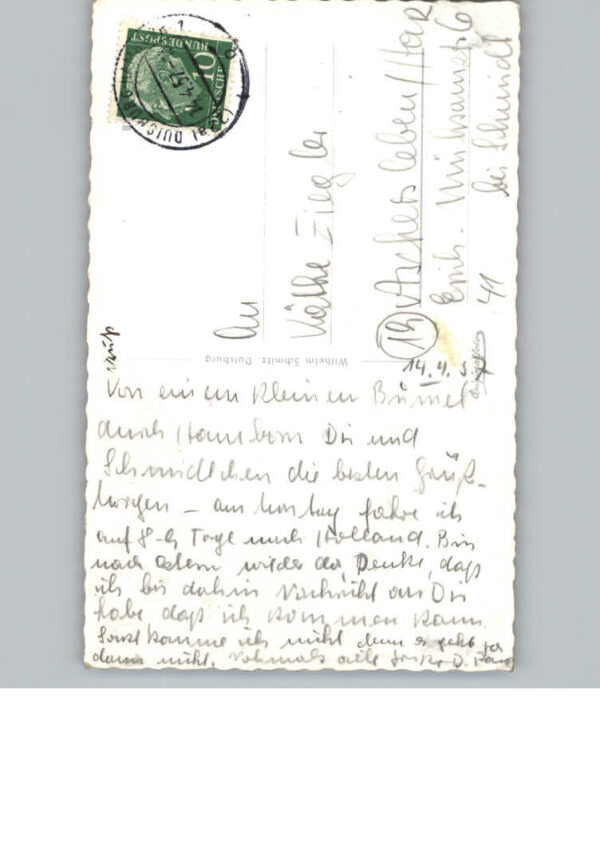 14.4.57
Von einem kleinen Bummel
durch Hamborn Dir und
Schmidtchen die besten Grüß-
Morgen – am Montag fahre ich
auf 8-9 Tage nach Holland. Bin
nach Ostern wieder da, Denke, daß
ich bis dahin Nachricht von Dir
habe, daß ich kommen kann
Sonst komme ich nicht denn es geht ja
dann nicht. Nochmals viele Grüße D.
An
Käthe Ziegler
19 Aschersleben/Har
Erich-Mühsamstr. 6
bei Schmidt
41
Wilhelm Schmitz, Duisburg
DEUTSCHE
BUNDESPOST
10
DUISBURG